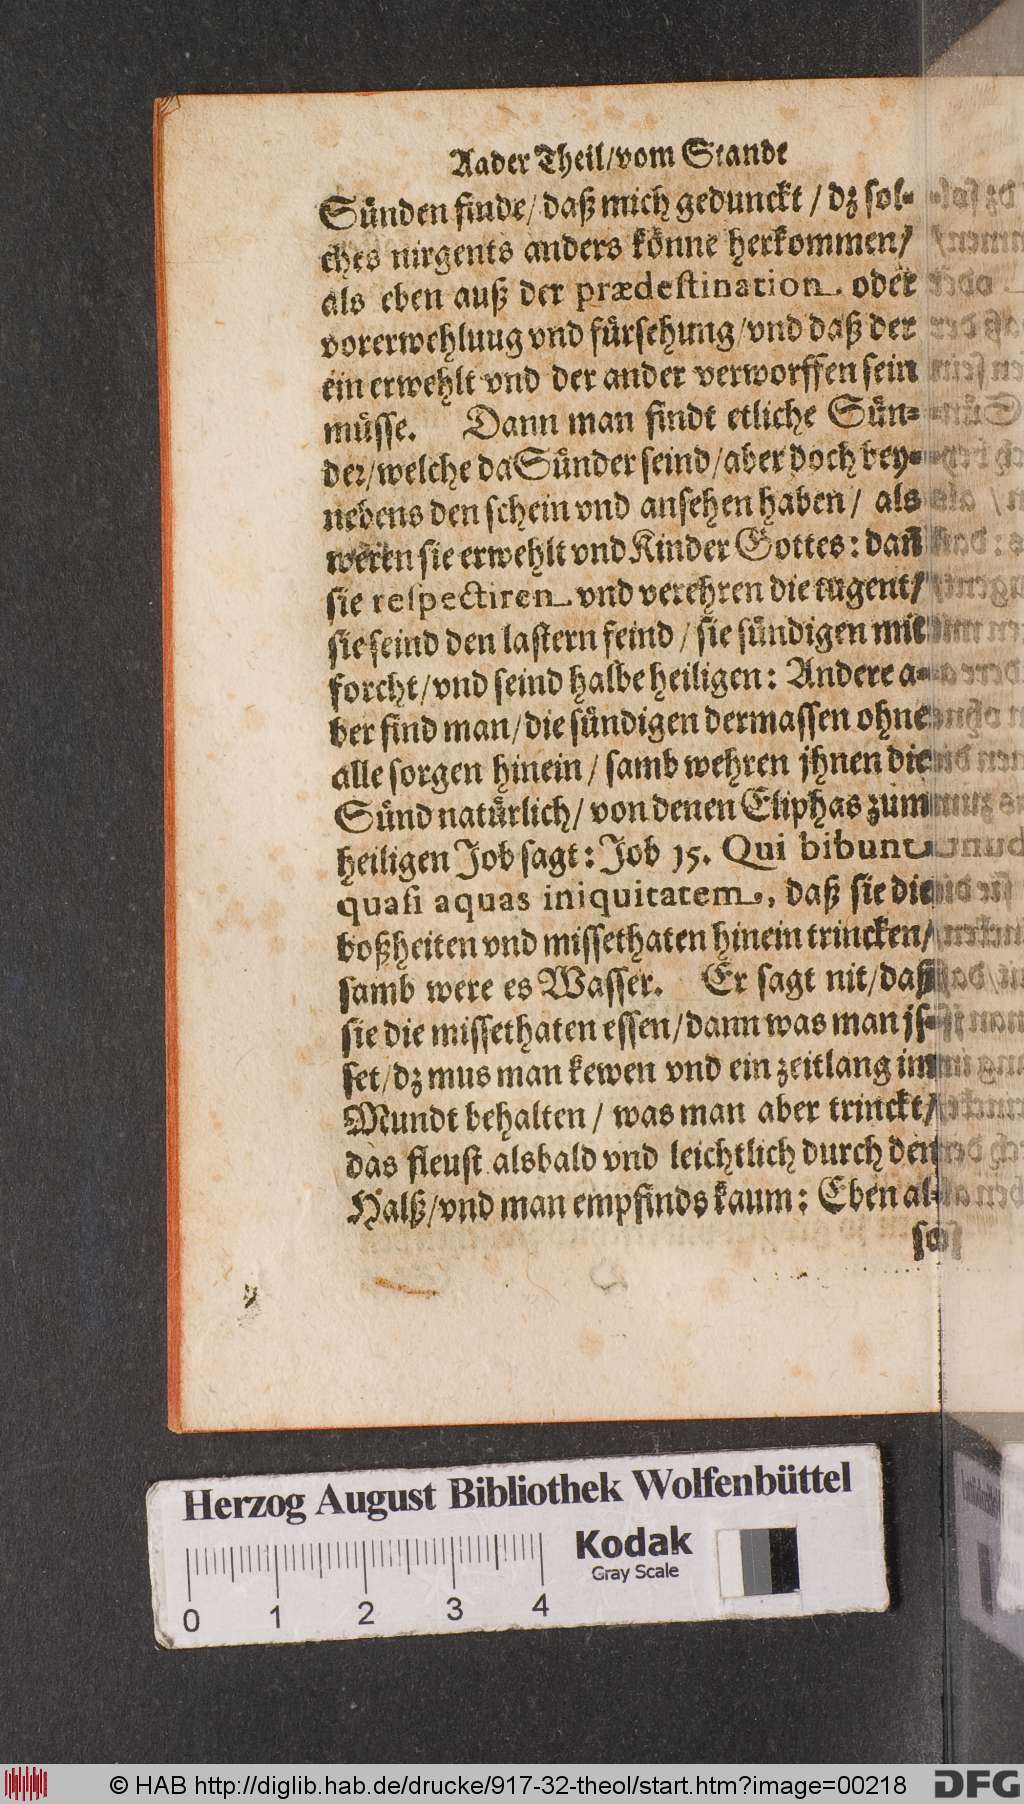 Aader Theil/vom Stande
Sünden finde/ daß mich gedunckt / dz sol-
ches nirgents anders könne herkommen/
als eben auß der prædestination oder
vorerwehluug vnd fürsehung/vnd daß der
ein erwehlt vnd der ander verworffen sein
müsse. Dann man findt etliche Sün-
der/welche da Sünder seind/aber doch bey-
nebens den schein vnd ansehen haben/ als
weren sie erwehlt vnd Kinder Gottes: dañ
sie respectiren vnd verehren die tugent/
sie seind den lastern feind / sie sündigen mit
forcht/vnd seind halbe heiligen: Andere a-
ber find man/die sündigen dermassen ohne
alle sorgen hinein / samb wehren jhnen die
Sünd natürlich/ von denen Eliphas zum
heiligen Job sagt: Job 15. Qui bibunt
quasi aquas iniquitatem, daß sie die
boßheiten vnd missethaten hinein trincken/
samb were es Wasser. Er sagt nit/daß
sie die missethaten essen/dann was man js-
set/dz mus man kewen vnd ein zeitlang im
Mundt behalten / was man aber trinckt/
das fleust alsbald vnd leichtlich durch den
Halß/vnd man empfinds kaum: Eben al-
so
Herzog August Bibliothek Wolfenbüttel
Kodak
Gray Scale
0 1 2 3 4
© HAB http://diglib.hab.de/drucke/917-32-theol/start.htm?image=00218
DFG